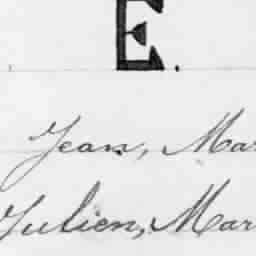 E.
Jean, Mar
Julien, Mar